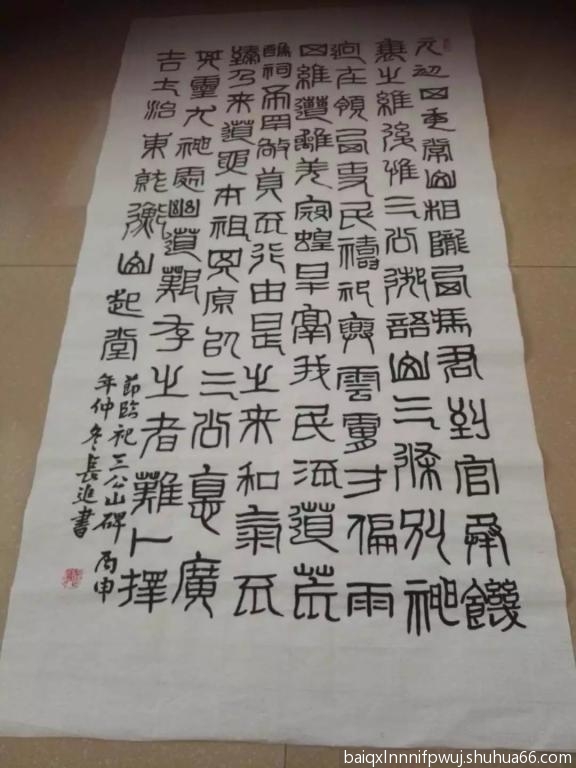 元初四年常山相隴西馮君到官承饑
衰之維後惟三公御語山三條別神
迥在領西吏民禱祀興雲膚寸偏雨
四維遭離羌寇蝗旱鬲我民流道荒
醮祠希罕敬奠不行由是之來和氣不
臻乃來道要本祖其原以三公德廣
其靈尤神處幽道艱存之者難卜擇
吉土治東就衡山起堂
節臨祀三公山碑 丙申
年仲冬長進書
baiqxlnnnifpwuj.shuhua66.com